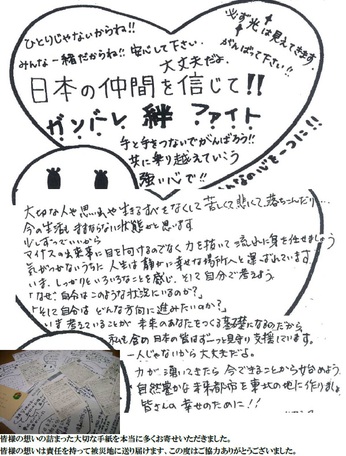 ひとりじゃないからね!!
みんな一緒だからね!! 安心して下さい。
大丈夫だよ。
必ず光は見えてきます。
がんばって下さい!!
日本の仲間を信じて!!
ガンバレ 絆 ファイト
手と手をつないでがんばろう!!
共に乗り越えていこう
強い心で!!
心を一つに!!
大切な人や思い出や生きるすべをなくして苦しくて悲しくて、落ちこんだり…
今の生活もままならない状態かと思います。
少しずつでいいから
マイナスの出来事に目を向けるのでなく 力を抜いて 流れに身を任せましょう
気がつかないうちに 人生は 静かに 幸せな場所へと運ばれています。
いま、しっかりといろいろなことを感じ、そして自分で考えよう。
「なぜ、自分はこのような状況にいるのか?」
「そして自分は どんな方向に進みたいのか?」
いま 考えていることが 未来のあなたをつくる基礎になるのだから
私も含め 日本の皆はずーっと見守り支援しています。
一人じゃないから大丈夫だよ。
力が湧いてきたら 今できることから始めよう。
自然豊かな未来都市を東北の地に作りましょ
皆さんの幸せのために!!
皆様の想いの詰まった大切な手紙を本当に多くお寄せいただきました。
皆様の想いは責任を持って被災地に送り届けます、この度はご協力ありがとうございました。